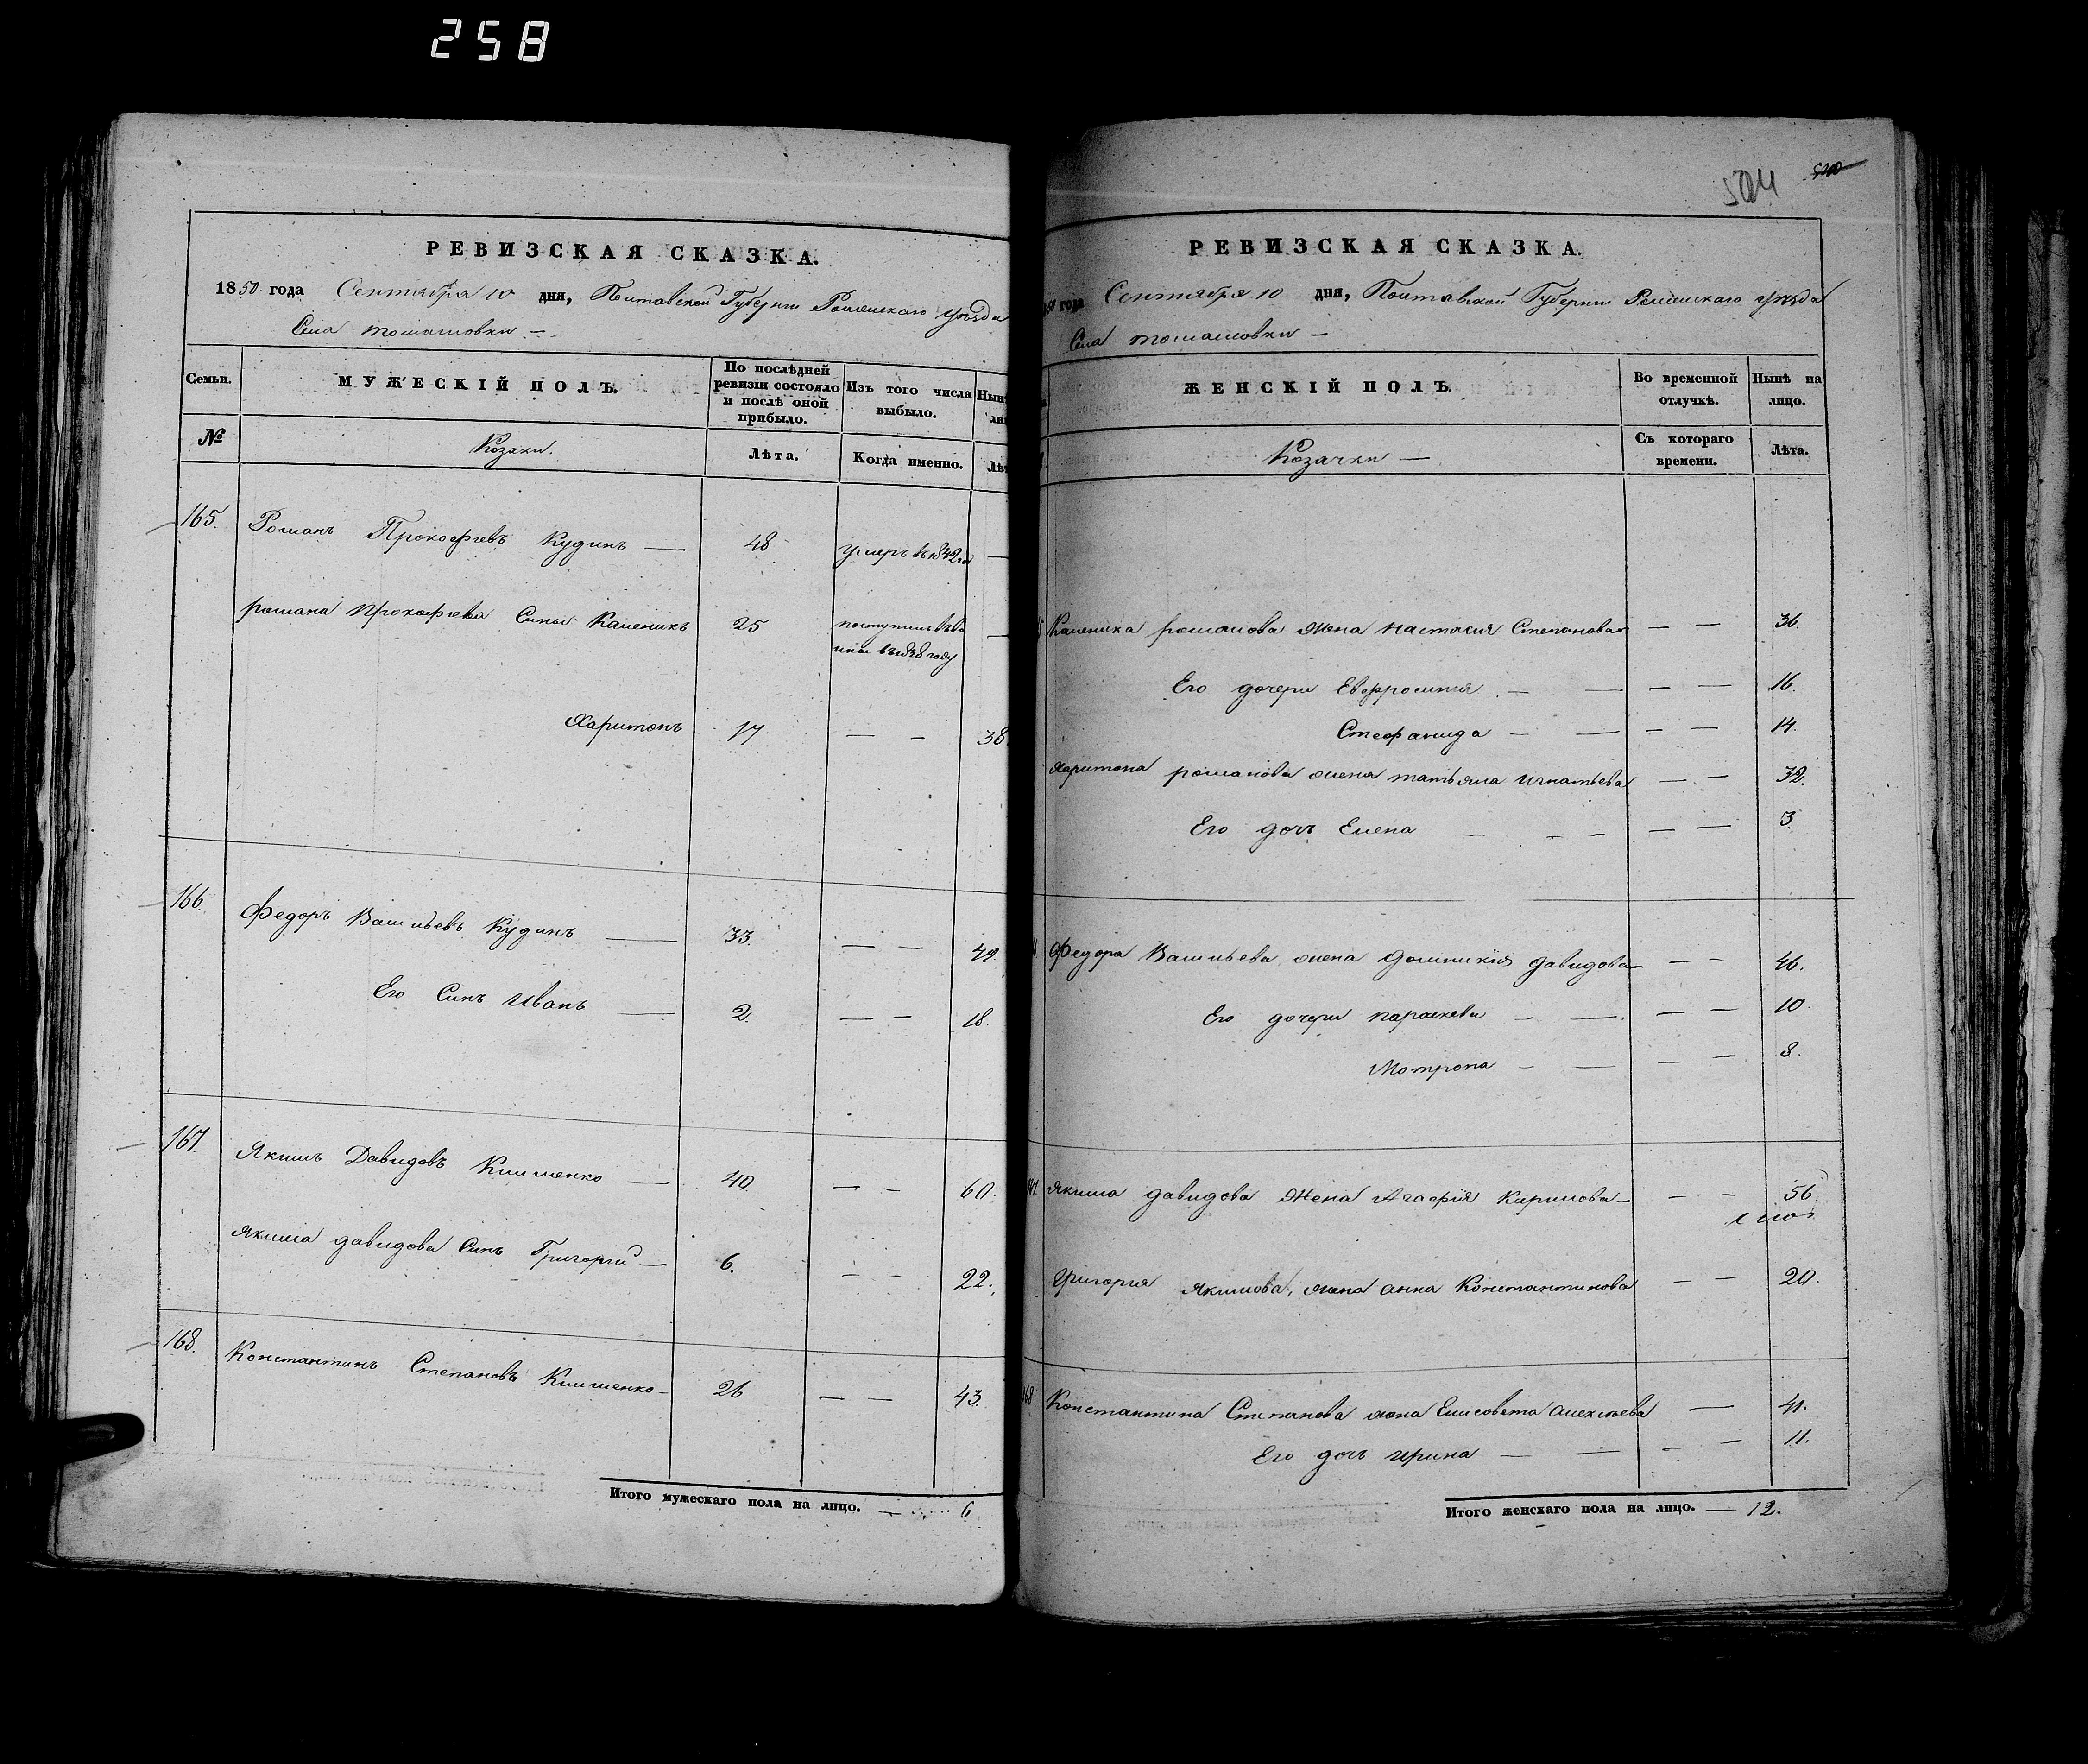 258
РЕВИЗСКАЯ СКАЗКА.
1850 года Сентября 10 дня, Полтавской Губернии Роменскаго уѣзда
Села томашовки —
Семьи.
МУЖЕСКІЙ ПОЛЪ.
По послѣдней ревизіи состояло и послѣ оной прибыло.
Изъ того числа выбыло.
№
Козаки.
Лѣта.
Когда именно.
165. Романъ Прокофіевъ Кудинъ — 48 умеръ въ 1842 го —
романа Прокофіева Сыны Каленикъ 25 —
въ 1838 году
Харитонъ 17 — — 38
166. Федоръ Васильевъ Кудинъ — 33. — — 49.
Его Синъ Иванъ — 2. — — 18.
167 Якимъ Давидовъ Клименко — 40. — — 60.
якима давидова Синъ Григорій — 6. — — 22.
168. Константинъ Степановъ Климменко — 26 — — 43.
Итого мужескаго пола на лицо. — 6
504
РЕВИЗСКАЯ СКАЗКА.
года Сентября 10 дня, Полтавской Губернии Роменскаго уѣзда
Села томашовки —
ЖЕНСКІЙ ПОЛЪ.
Во временной отлучкѣ.
Нынѣ на лицо.
Козачки —
Съ котораго времени.
Лѣта.
Каленика романова жена настасия Степановая — — 36.
Его дочери Евфросиния — — — — 16.
Стефанида — — — — 14.
Харитона романова жена татьяна игнатьева — — 32.
Его дочь Елена — — — — — 3.
Федора Васильева жена доминикия давидова — — 46.
Его дочери параскева — — — — 10.
Мотрона — — — — 8.
167. якима давидова жена Агафія Кирилова — — — 56.
григория якимова, жена анна Константинова — — 20.
168 Константина Степанова жена Елисовета алексѣева — 41.
Его дочь ирина — — — — 11.
Итого женскаго пола на лицо. — 12.